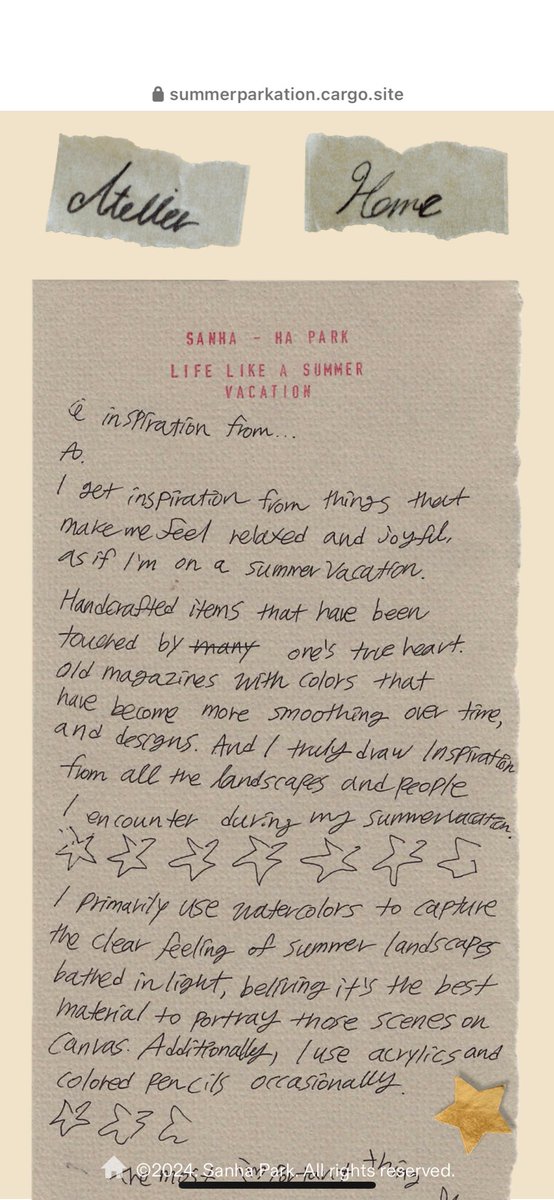 summerparkation.cargo.site
Atelier
Home
SANHA - HA PARK
LIFE LIKE A SUMMER
VACATION
inspiration from...
A.
I get inspiration from things that
make me feel relaxed and joyful,
as if I'm on a summer vacation.
Handcrafted items that have been
touched by many one's true heart.
Old magazines with colors that
have become more smoothing over time,
and designs. And I truly draw Inspiration
from all the landscapes and people
I encounter during my summer vacation.
I primarily use watercolors to capture
the clear feeling of summer landscapes
bathed in light, beliving it's the best
material to portray those scenes on
canvas. Additionally, I use acrylics and
colored pencils occasionally.
The most important thing
©2024. Sanha Park. All rights reserved.